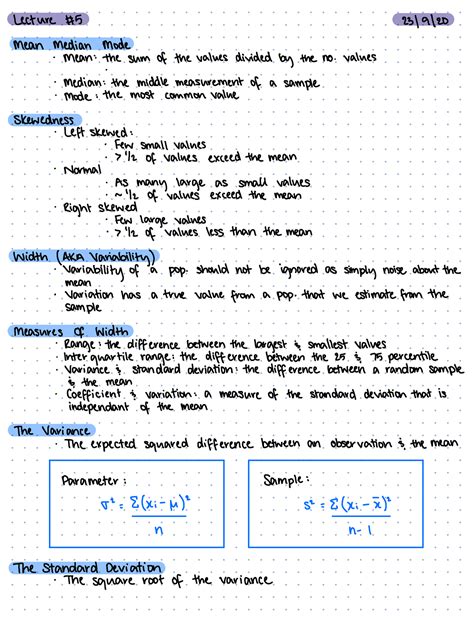 Lecture #5 23/9/20
Mean Median Mode
· Mean: the sum of the values divided by the no. values
·
· Median: the middle measurement of a sample
· Mode: the most common value
Skewedness
· Left skewed:
· Few small values
· > 1/2 of values exceed the mean
· Normal
· As many large as small values
· ~ 1/2 of values exceed the mean
· Right skewed
· Few large values
· > 1/2 of values less than the mean
Width (AKA Variability)
· Variability of a pop. should not be ignored as simply noise about the
mean
· Variation has a true value from a pop. that we estimate from the
sample
Measures of Width
· Range: the difference between the largest & smallest values
· Inter quartile range: the difference between the 25 & 75 percentile
· Variance & standard deviation: the difference between a random sample
& the mean
· Coefficient & variation: a measure of the standard deviation that is
independant of the mean
The Variance
· The expected squared difference between an observation & the mean
Parameter:
σ² = Σ(xi - μ)² / n
Sample:
s² = Σ(xi - x̄)² / n-1
The Standard Deviation
· The square root of the variance